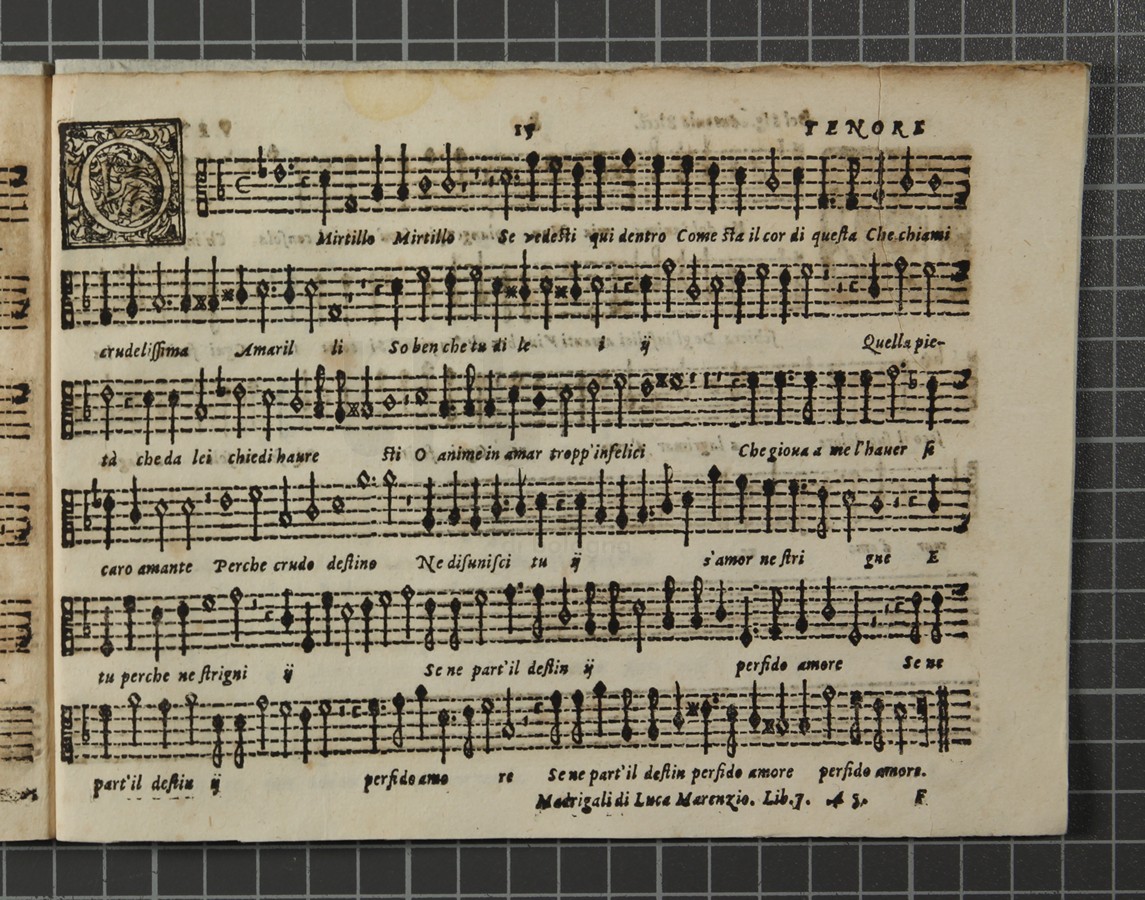 15 TENORE
O Mirtillo Mirtillo Se vedesti qui dentro Come sta il cor di questa Che chiami
crudelissima Amaril li So ben che tu di le i ij Quella pie-
tà che da lei chiedi haure sti O anime in amar tropp'infelici Che gioua a me l'hauer sì
caro amante Perche crudo destino Ne disunisci tu ij s'amor ne stri gne E
tu perche ne strigni ij Se ne part'il destin ij perfido amore Se ne
part'il destin ij perfido amo re Se ne part'il destin perfido amore perfido amore.
Madrigali di Luca Marenzio. Lib. 7. A 5. F